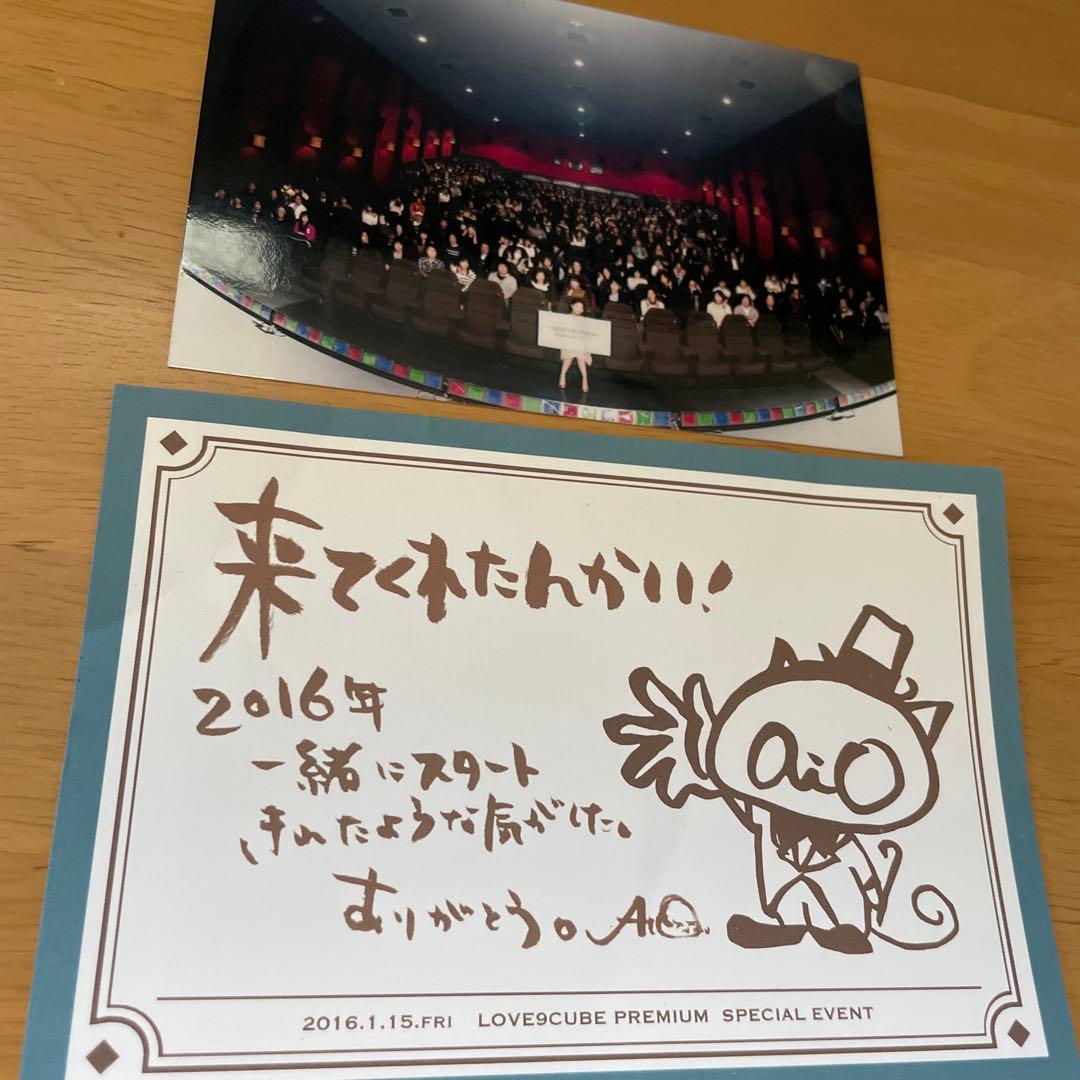 来てくれたんかい!
2016年
一緒にスタート
きれたような気がした。
ありがとう。
aiO
2016.1.15.FRI LOVE9CUBE PREMIUM SPECIAL EVENT